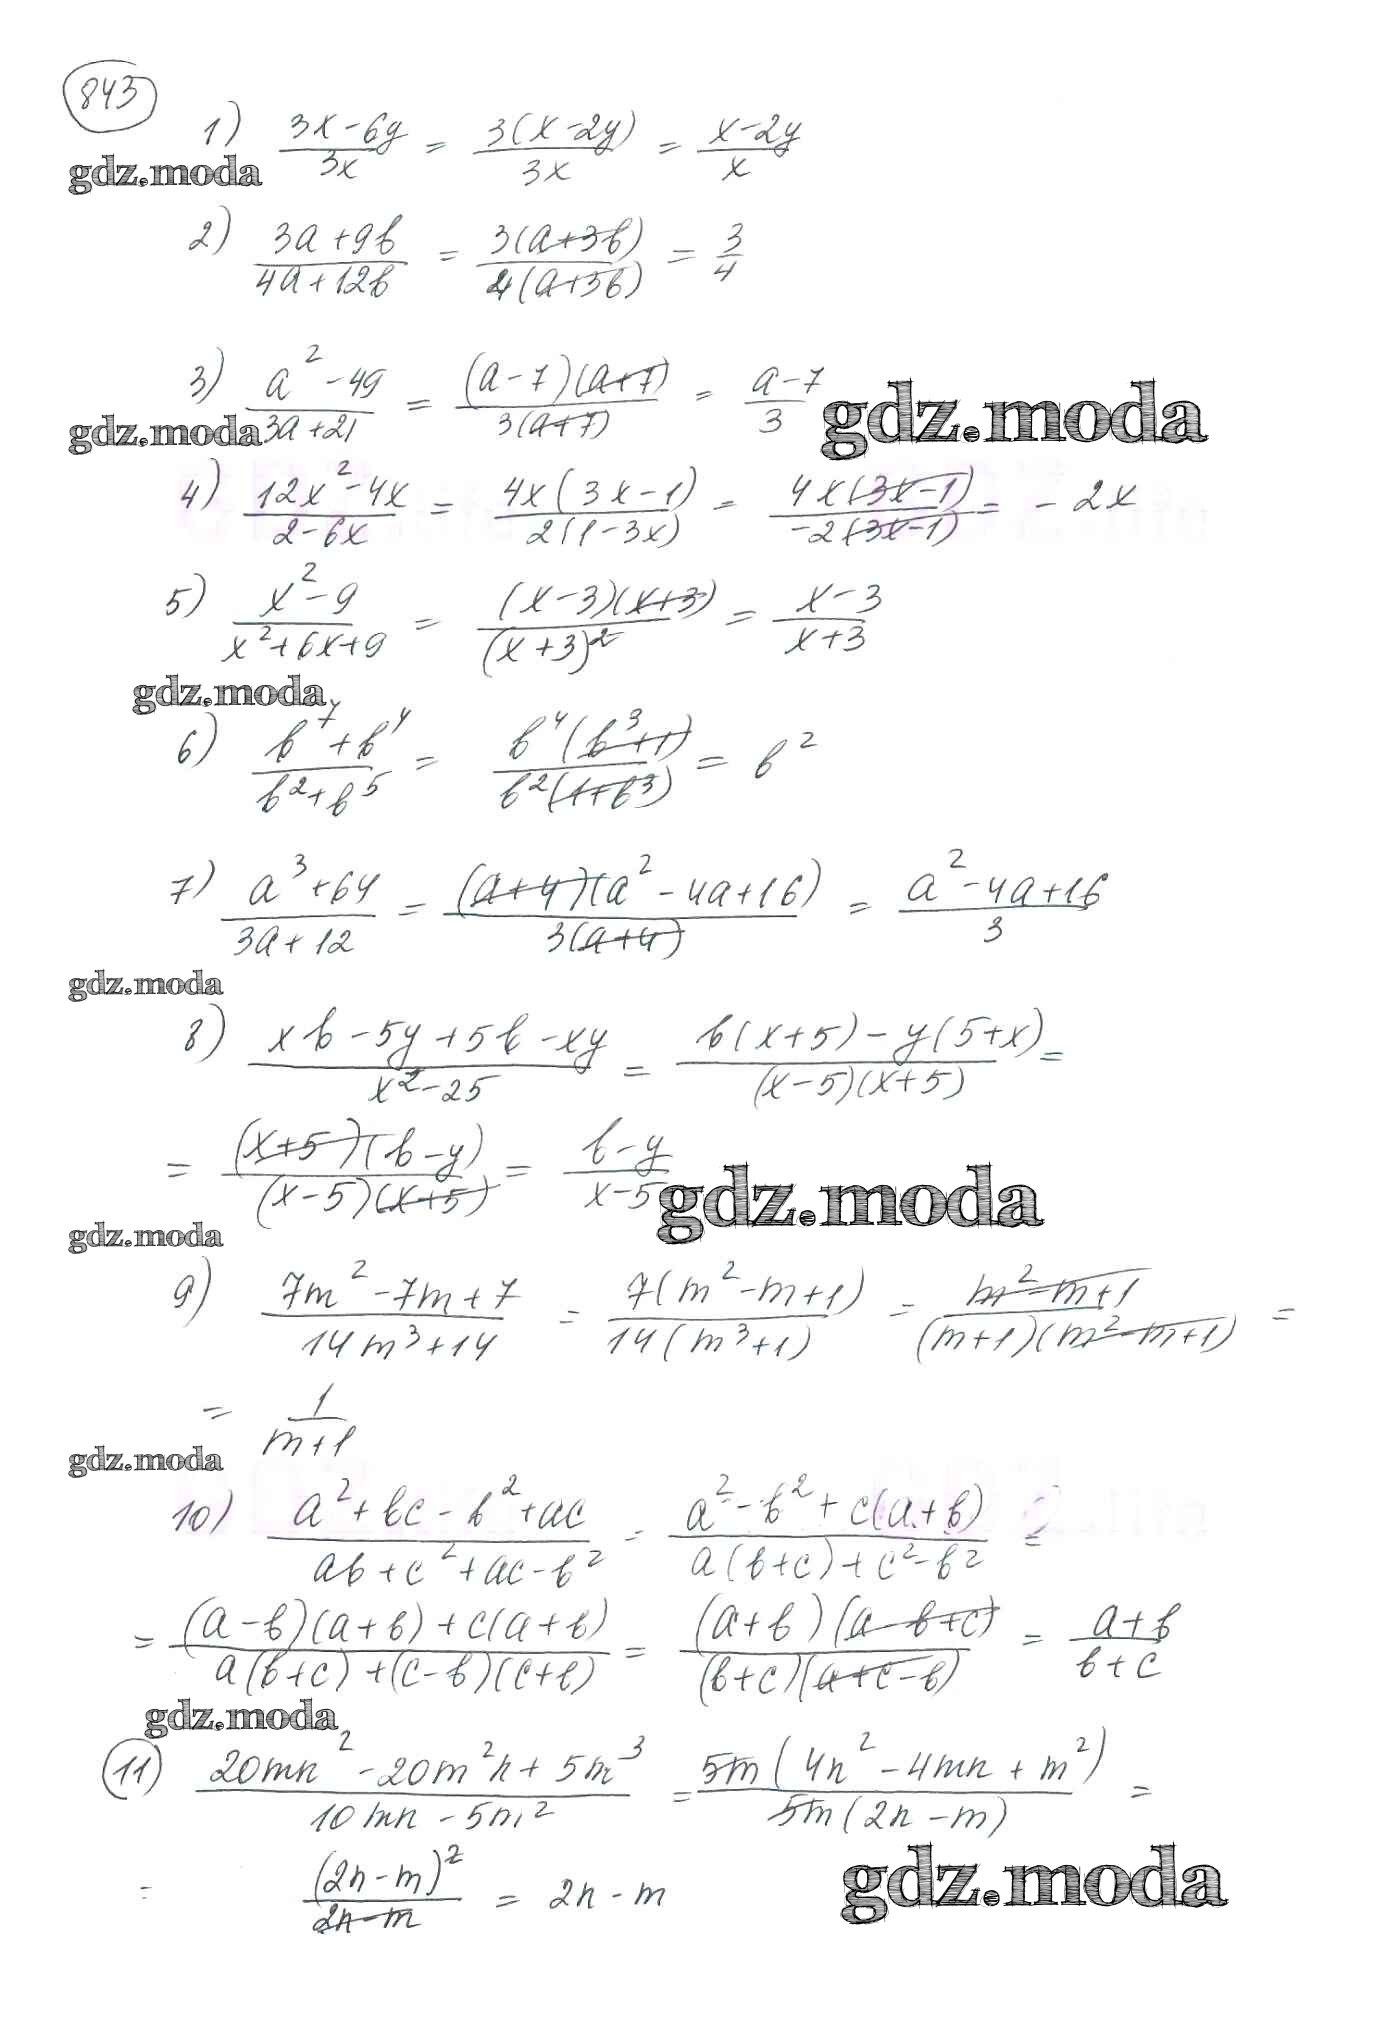 843
1) (3x-6y)/(3x) = (3(x-2y))/(3x) = (x-2y)/x
gdz.moda
2) (3a+9b)/(4a+12b) = (3(a+3b))/(4(a+3b)) = 3/4
3) (a²-49)/(3a+21) = ((a-7)(a+7))/(3(a+7)) = (a-7)/3
gdz.moda
gdz.moda
4) (12x²-4x)/(2-6x) = (4x(3x-1))/(2(1-3x)) = (4x(3x-1))/(-2(3x-1)) = -2x
5) (x²-9)/(x²+6x+9) = ((x-3)(x+3))/((x+3)²) = (x-3)/(x+3)
gdz.moda
6) (b⁷+b⁴)/(b²+b⁵) = (b⁴(b³+1))/(b²(1+b³)) = b²
7) (a³+64)/(3a+12) = ((a+4)(a²-4a+16))/(3(a+4)) = (a²-4a+16)/3
gdz.moda
8) (xb-5y+5b-xy)/(x²-25) = (b(x+5)-y(5+x))/((x-5)(x+5)) =
= ((x+5)(b-y))/((x-5)(x+5)) = (b-y)/(x-5)
gdz.moda
gdz.moda
9) (7m²-7m+7)/(14m³+14) = (7(m²-m+1))/(14(m³+1)) = (m²-m+1)/((m+1)(m²-m+1)) =
= 1/(m+1)
gdz.moda
10) (a²+bc-b²+ac)/(ab+c²+ac-b²) = (a²-b²+c(a+b))/(a(b+c)+c²-b²) =
= ((a-b)(a+b)+c(a+b))/(a(b+c)+(c-b)(c+b)) = ((a+b)(a-b+c))/((b+c)(a+c-b)) = (a+b)/(b+c)
gdz.moda
11) (20mn²-20m²n+5m³)/(10mn-5m²) = (5m(4n²-4mn+m²))/(5m(2n-m)) =
= ((2n-m)²)/(2n-m) = 2n-m
gdz.moda